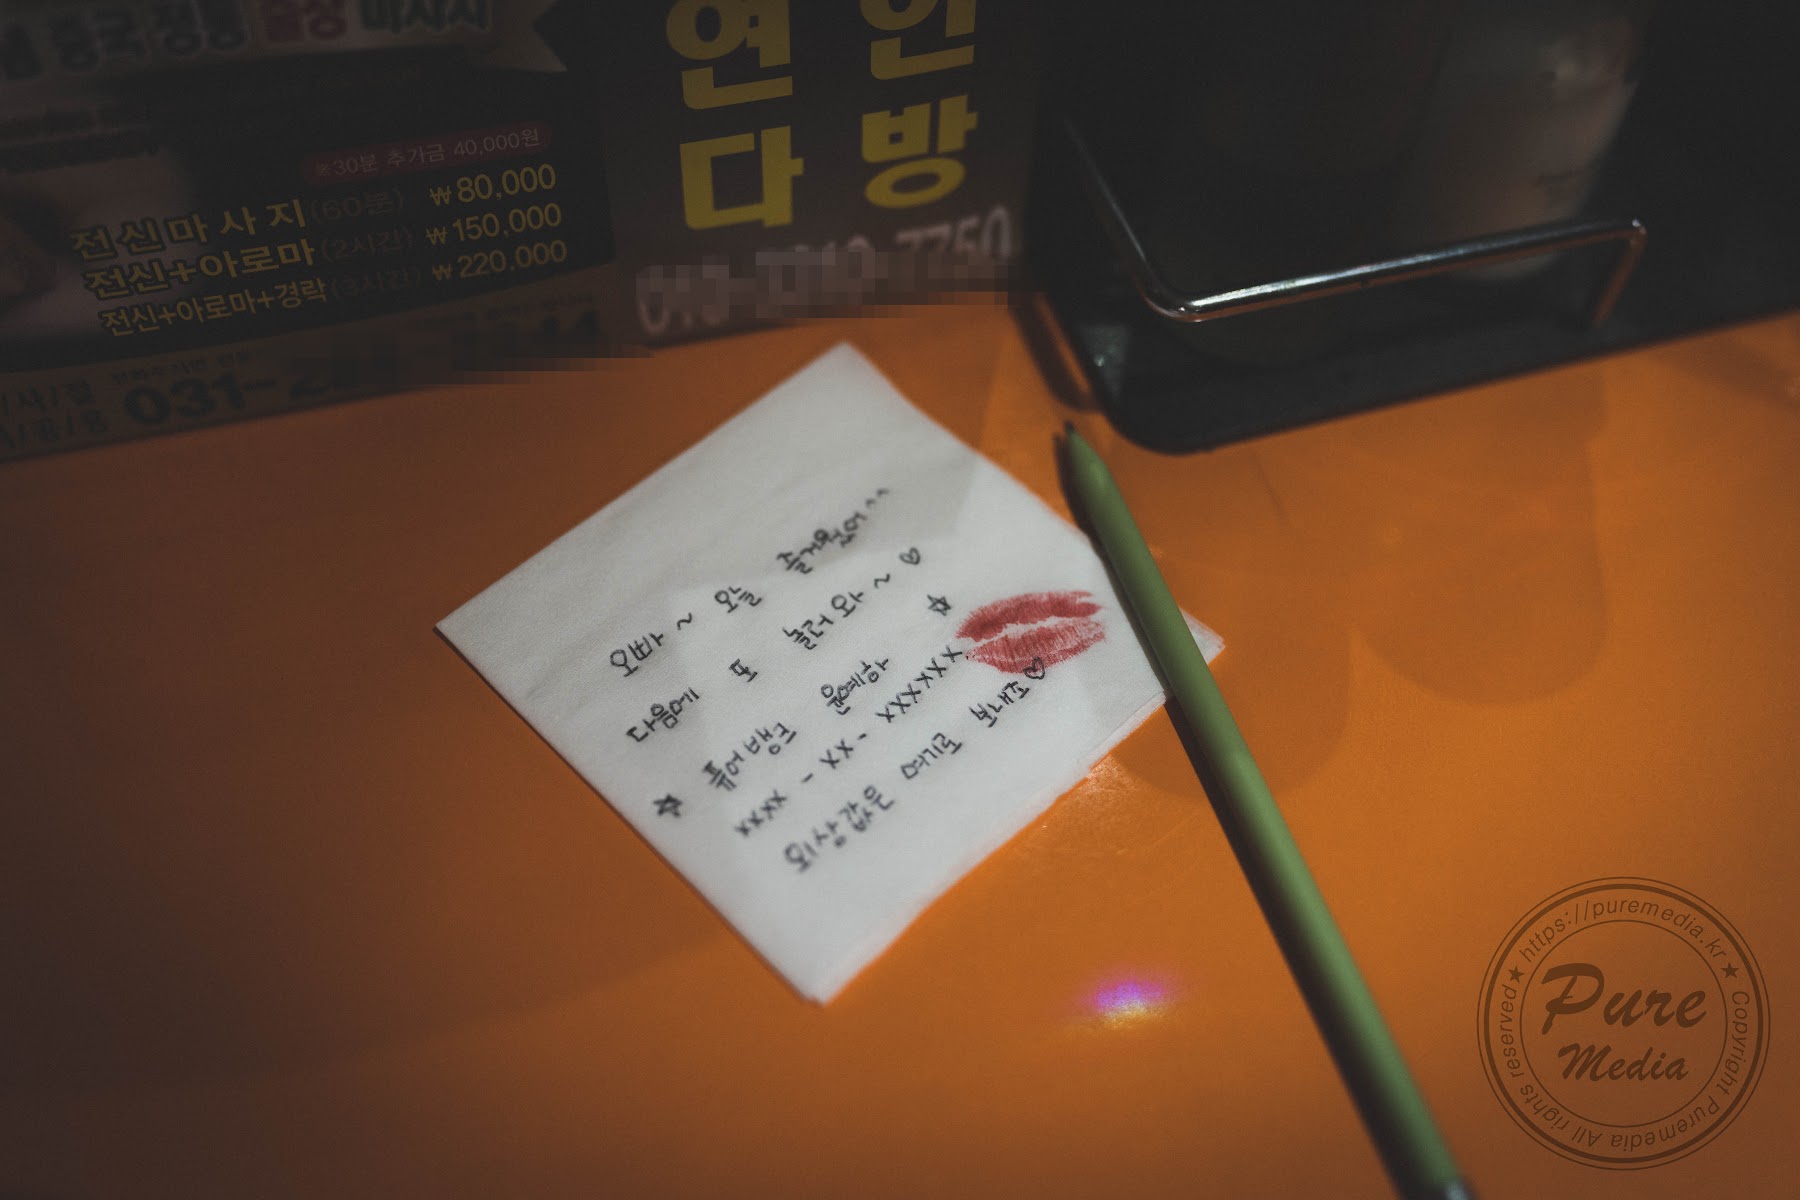 중국 정통 출장 마사지
※30분 추가금 40,000원
전신마사지(60분) ₩80,000
전신+아로마(2시간) ₩150,000
전신+아로마+경락(3시간) ₩220,000
031-
연인
다방
오빠~ 오늘 즐거웠어^^
다음에 또 놀러와~♡
☆ 퓨어뱅크 윤예하 ☆
xxxx-xx-xxxxxxx
외상값은 여기로 보내죠♡
https://puremedia.kr ★ Copyright Puremedia All rights reserved ★
Pure
Media